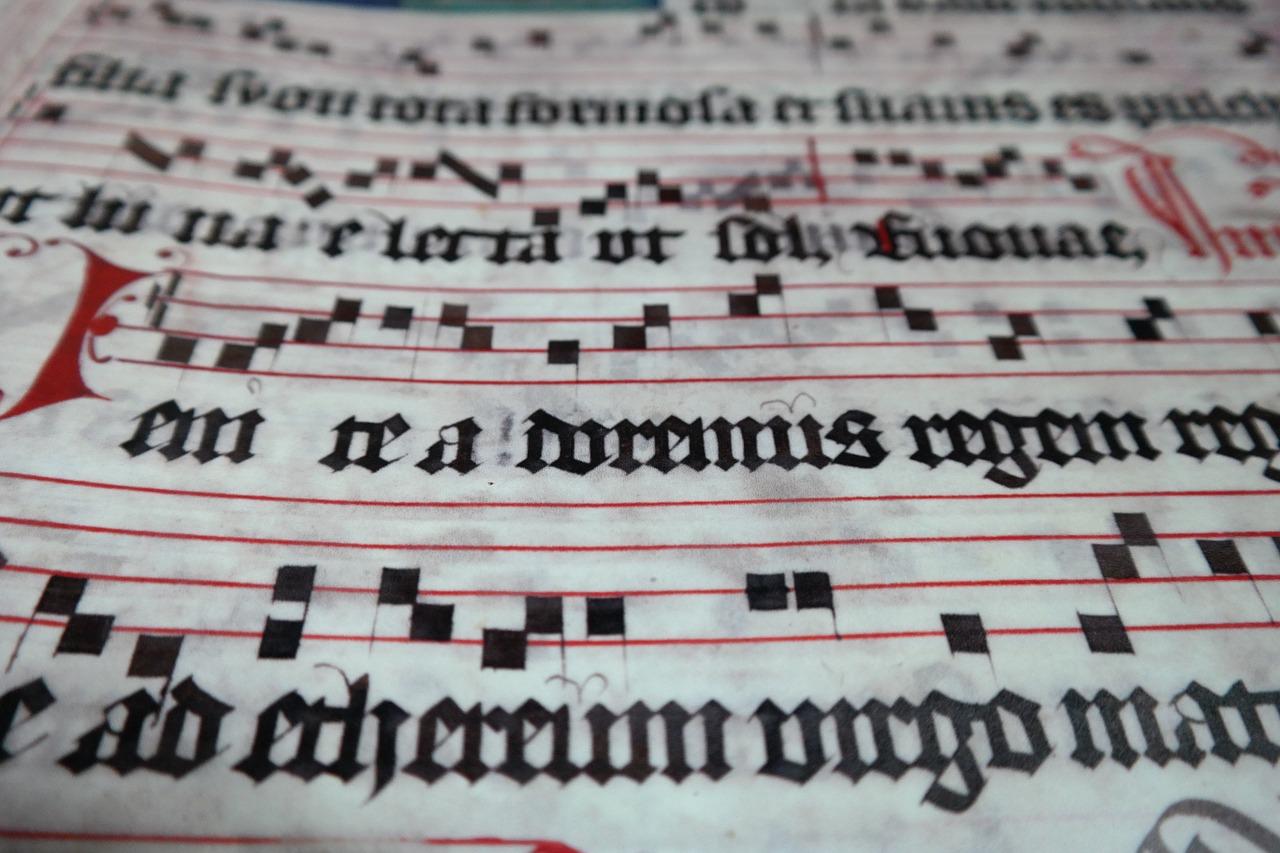 filia syon tota formosa et suavis es pulcra
et lu na e lecta ut sol, Euouae,
em te a doremus regem reg
e ad ethereum virgo mat